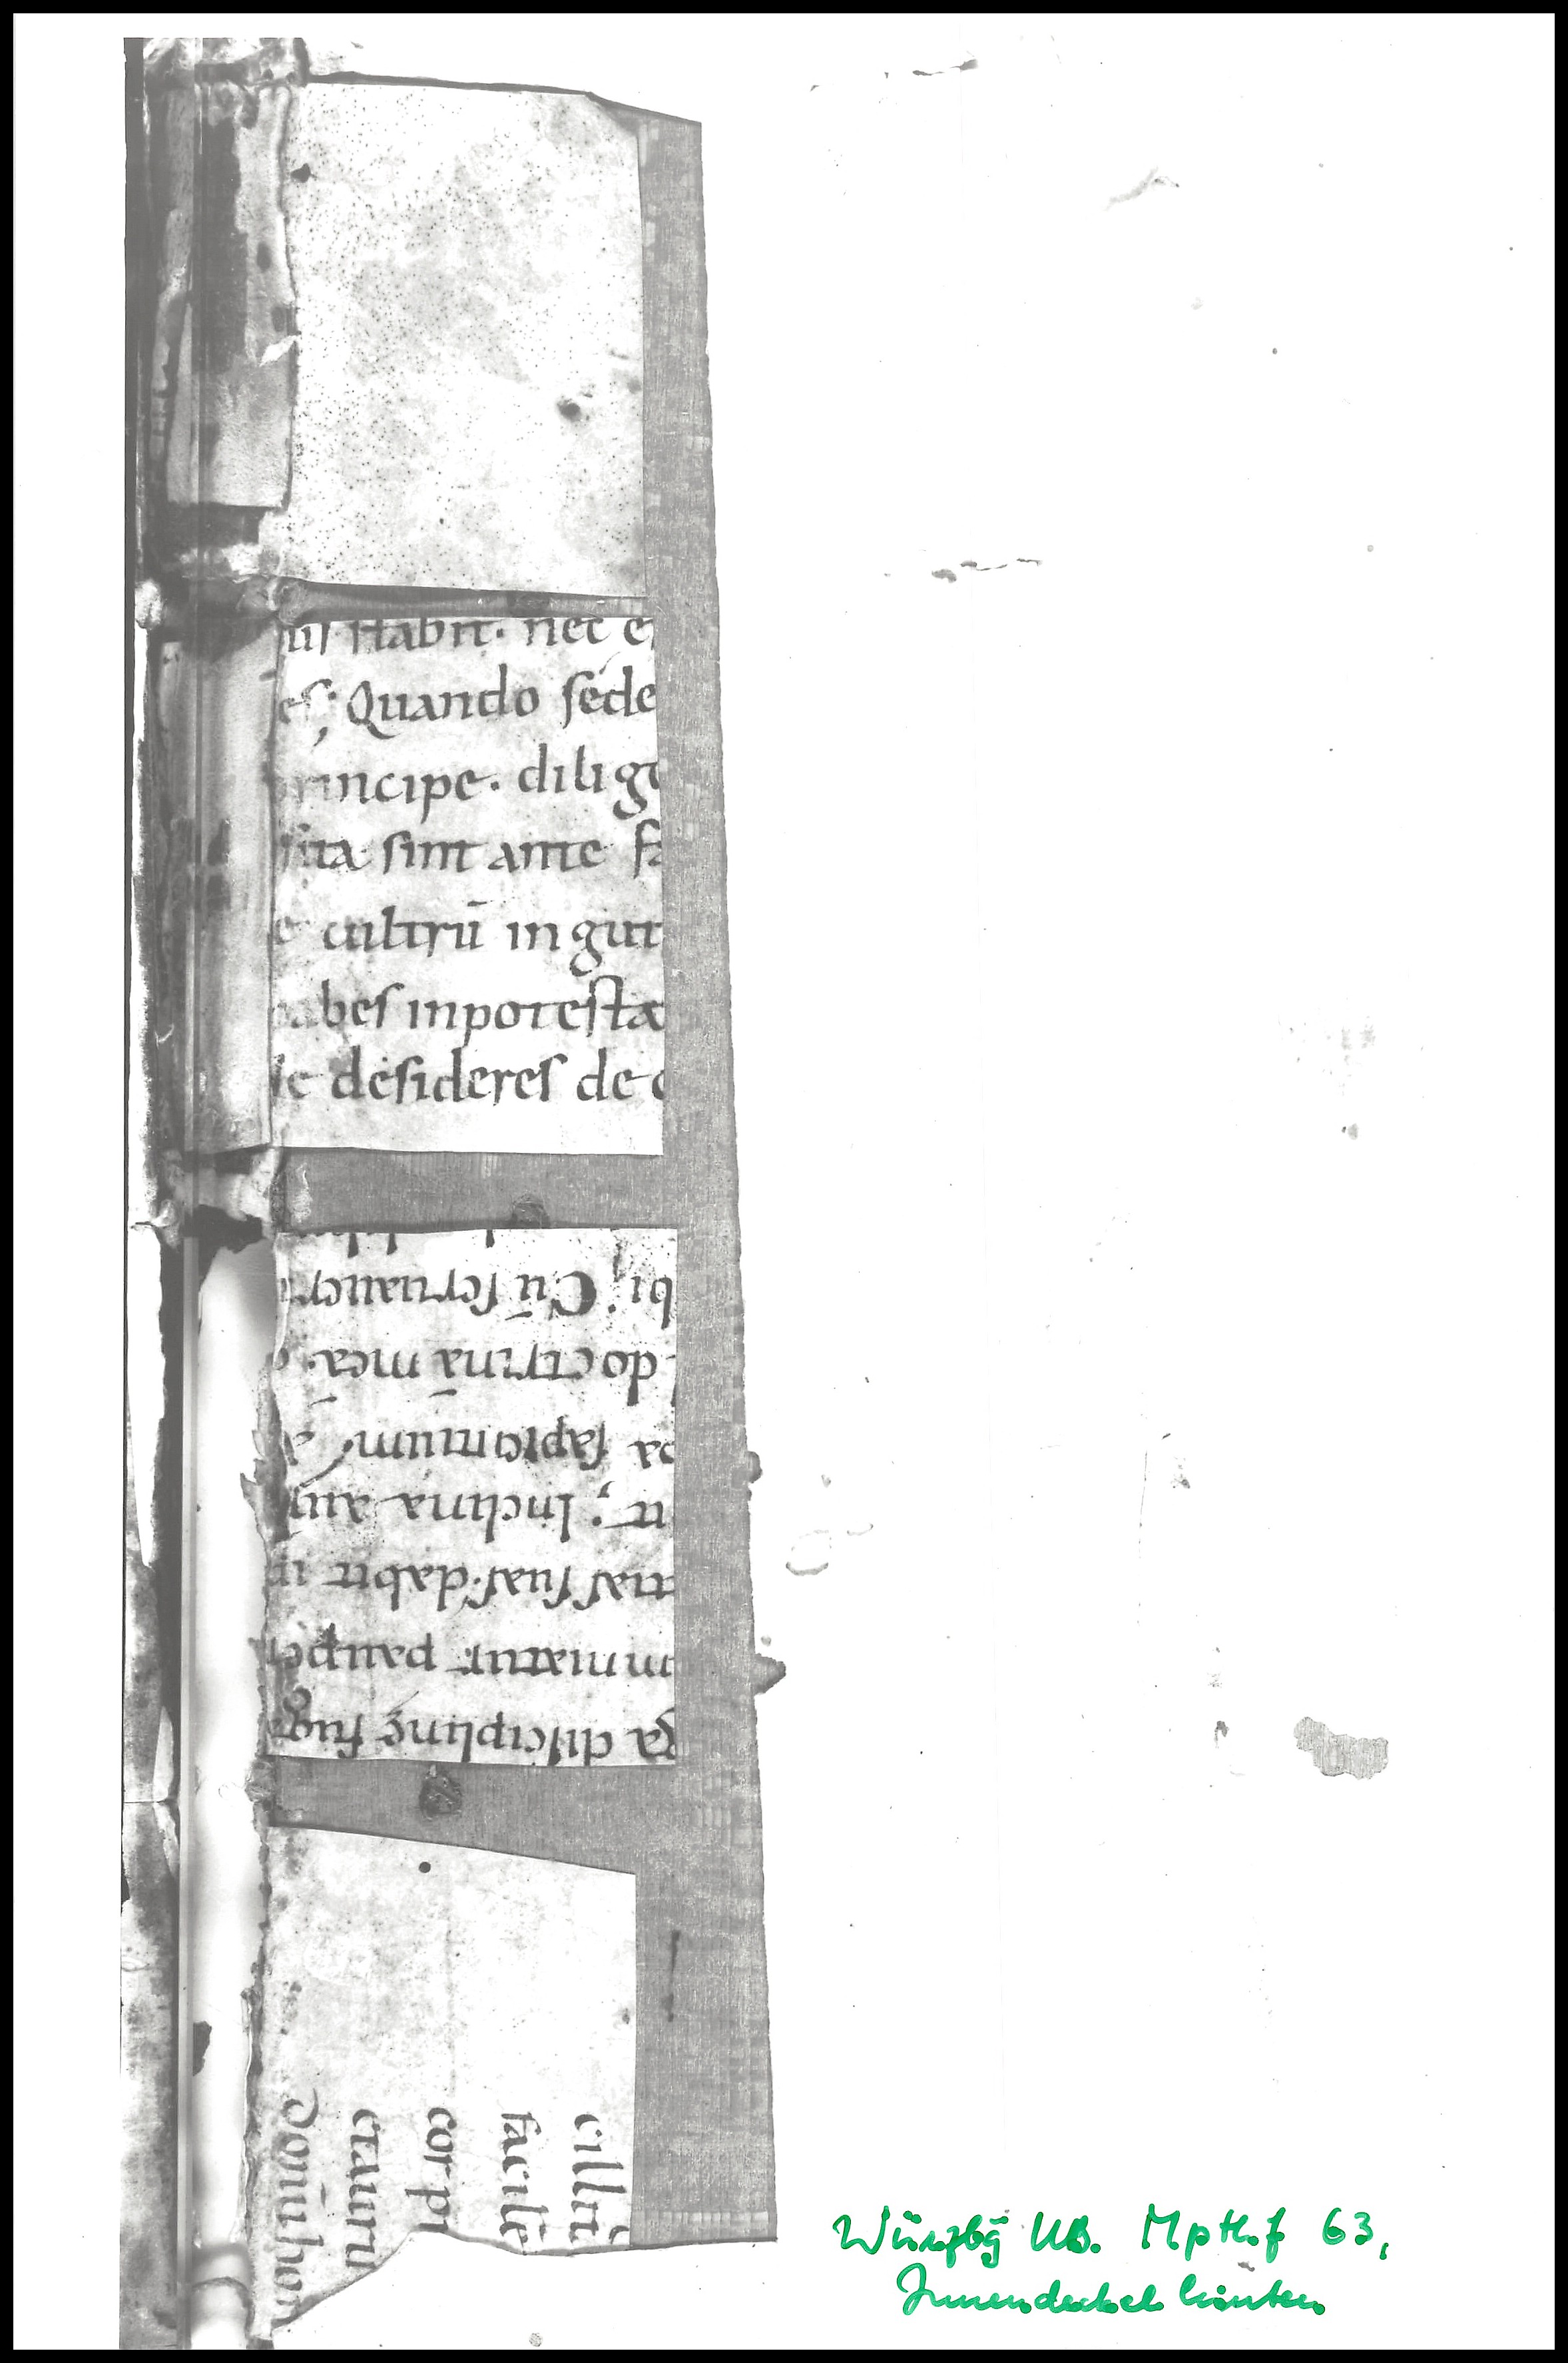 us stabit. nec e
es; Quando sede
rincipe. dilige
sita sunt ante fa
e cultrū in gut
abes in potesta
ne desideres de c
bi; Cū seruauer
doctrinā meā.
ba sapientium, a
it; Inclina aure
tias suas. dabit
miatur pauper
ga discipline fuga
cillu
facile
cor pi
ctauru
domū hon
Würzbg UB. M p th. f 63,
Innendeckel hinten